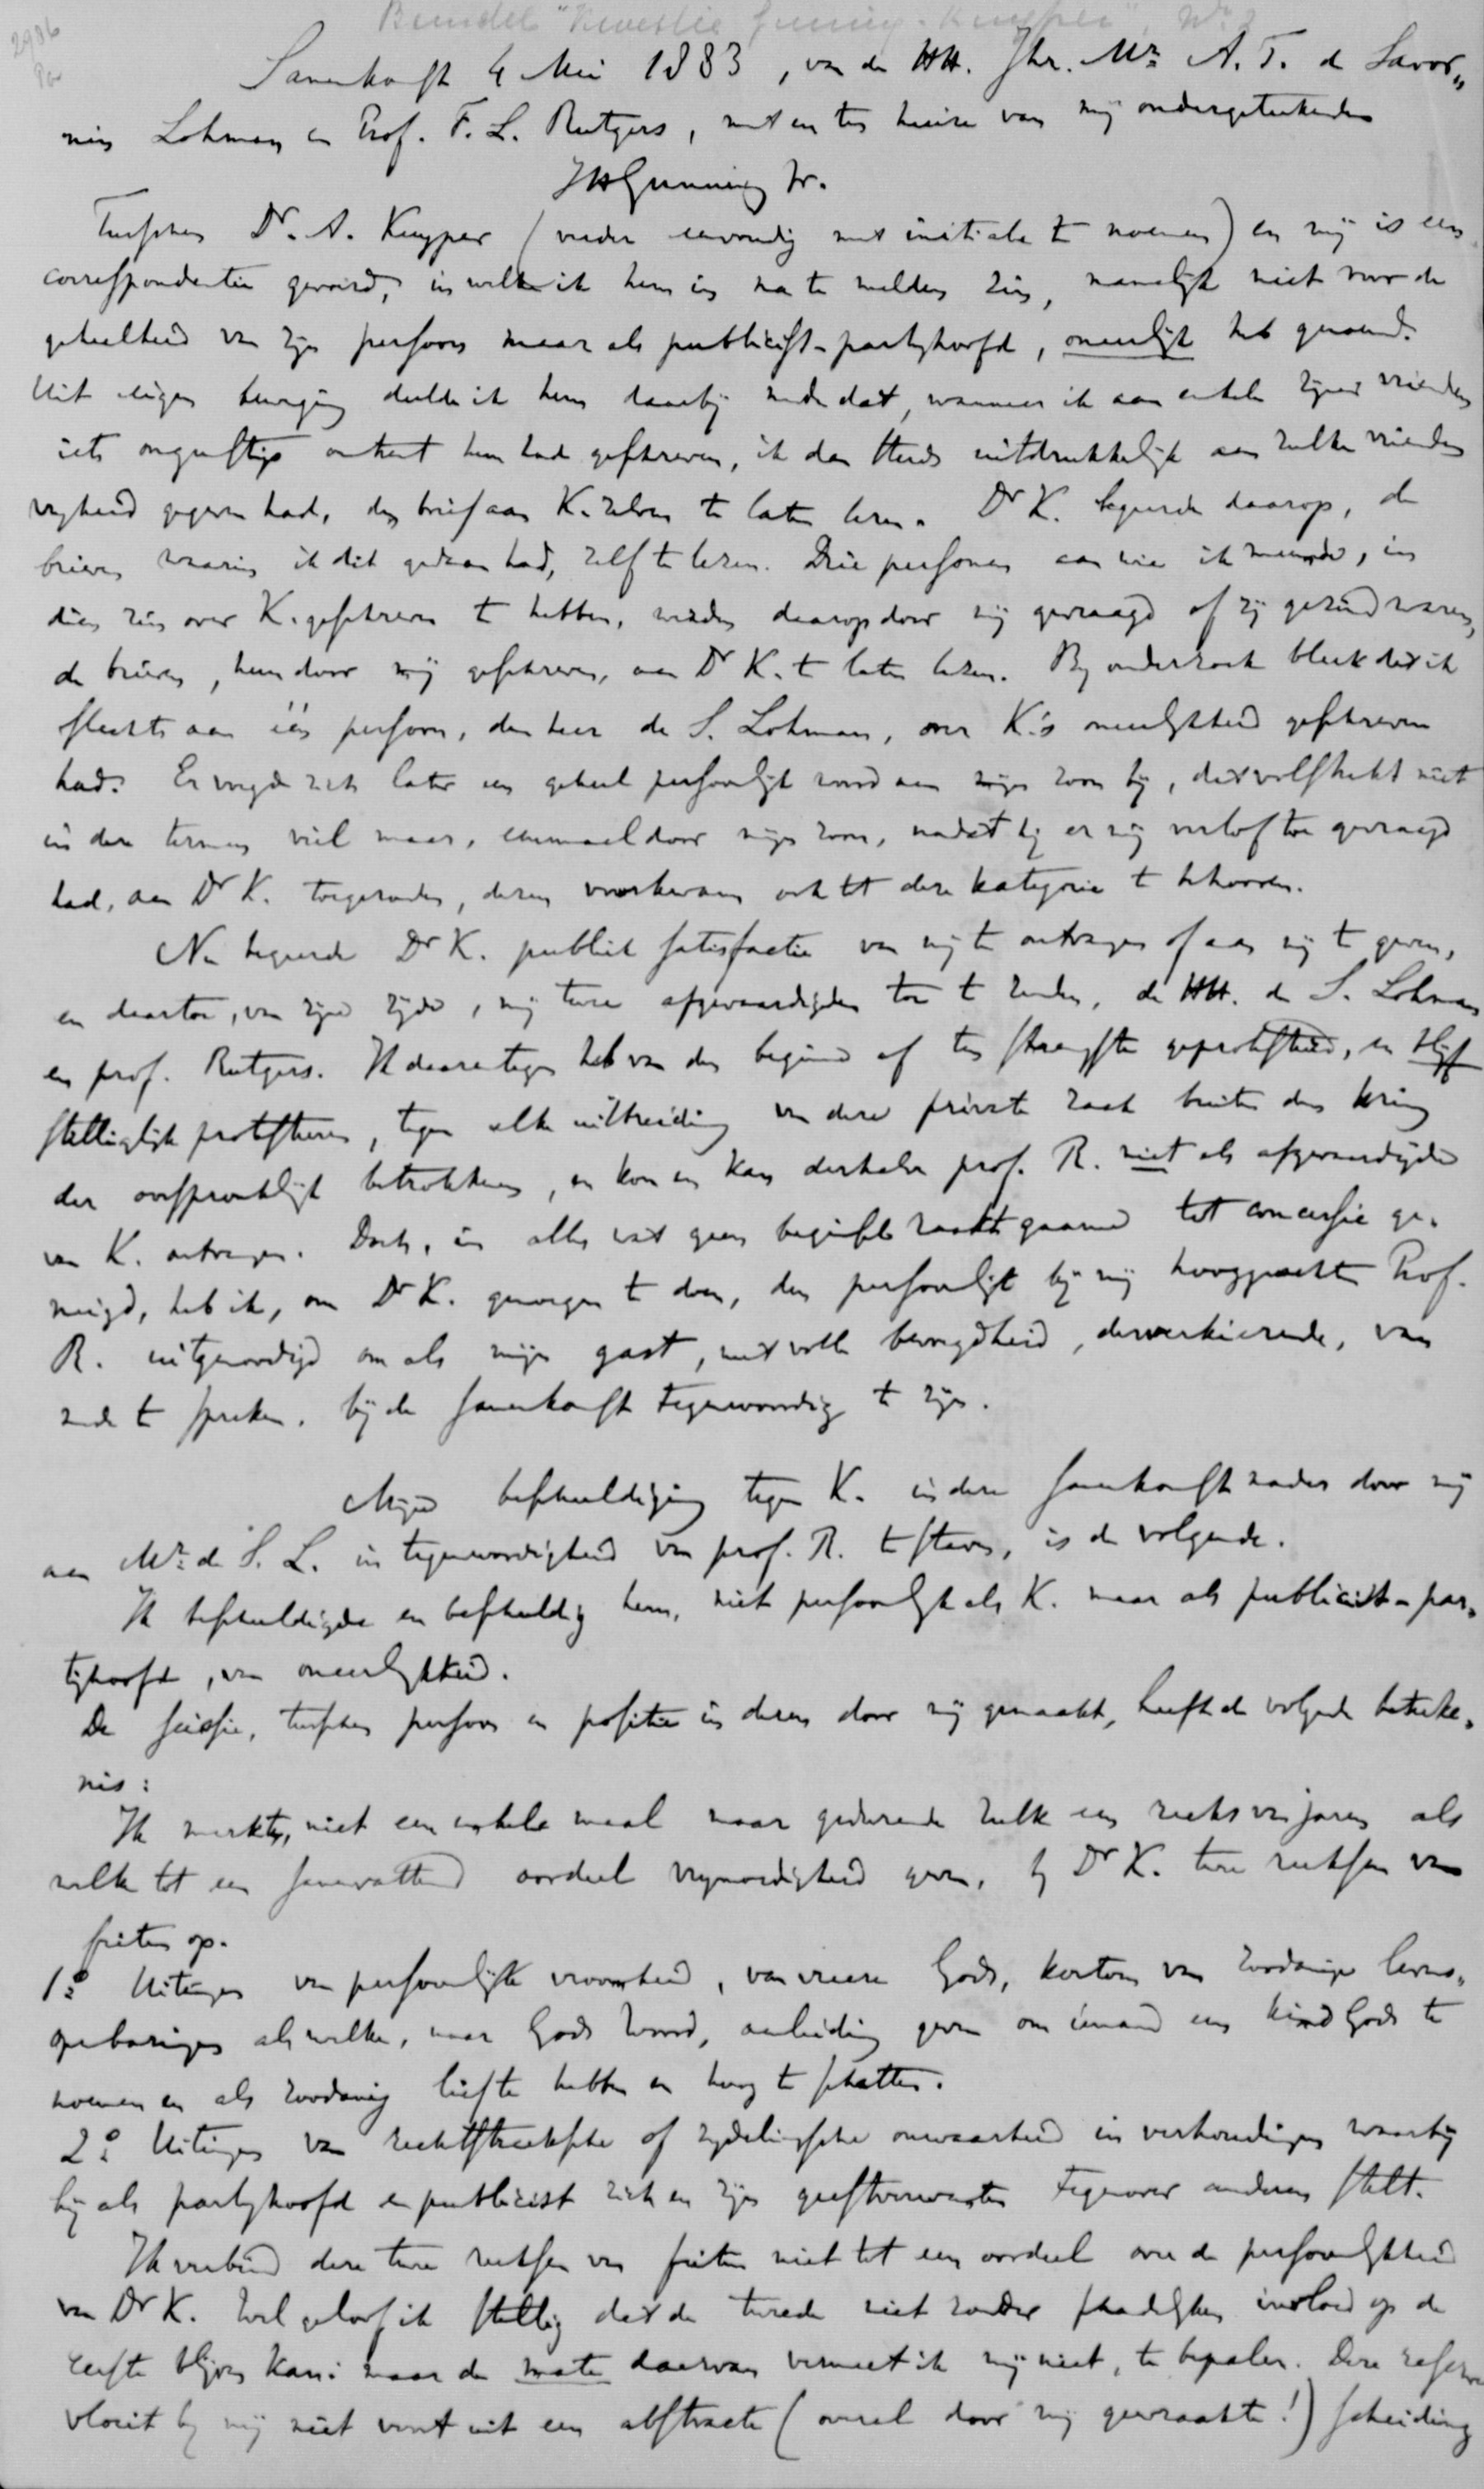 2986
Bundel "Kwestie Gunning-Kuyper", No 2
Samenkomst 4 Mei 1883, van de HH. Jhr. Mr. A. F. de Savor„
nin Lohman en Prof. F. L. Rutgers, met en ten huize van mij ondergeteekenden
JHGunning Jr.
Tusschen Dr. A. Kuyper (verder eenvoudig met initiale te noemen) en mij is een
correspondentie gevoerd, in welke ik hem in na te melden zin, namelijk niet voor de
geheelheid van zijn persoon maar als publicist-partijhoofd, oneerlijk heb genoemd.
Uit eigen beweging deelde ik hem daarbij mede dat, wanneer ik aan enkele zijner vrienden
iets ongunstigs omtrent hem had geschreven, ik dan steeds uitdrukkelijk aan zulke vrienden
vrijheid gegeven had, den brief aan K. zelven te laten lezen. Dr K. begeerde daarop, de
brieven waarin ik dit gedaan had, zelf te lezen. Drie personen aan wie ik meende, in
dien zin over K. geschreven te hebben, werden daarop door mij gevraagd of zij gezind waren,
de brieven, hun door mij geschreven, aan Dr K. te laten lezen. Bij onderzoek bleek dat ik
slechts aan één persoon, den heer de S. Lohman, over K.'s oneerlijkheid geschreven
had. Er voegde zich later een geheel persoonlijk woord aan mijn zoon bij, dat volstrekt niet
in deze termen viel maar, eenmaal door mijn zoon, nadat hij er mij verlof toe gevraagd
had, aan Dr K. toegezonden, dezen voorkwam ook tot deze kategorie te behooren.
Nu begeerde Dr K. publiek satisfactie van mij te ontvangen of aan mij te geven,
en daartoe, van zijne zijde, mij twee afgevaardigden toe te zenden, de HH. de S. Lohman
en prof. Rutgers. Ik daarentegen heb van den beginne af ten strengste geprotesteerd, en blijf
stelliglijk protesteren, tegen elke uitbreiding van deze private zaak buiten den kring
der oorspronkelijk betrokkenen, en kon en kan derhalve prof. R. niet als afgevaardigde
van K. ontvangen. Doch, in alles wat geen beginsel raakt gaarne tot concessie ge„
neigd, heb ik, om Dr K. genoegen te doen, den persoonlijk bij mij hooggeachten Prof.
R. uitgenoodigd om als mijn gast, met volle bevoegdheid, desverkiezende, van
mede te spreken, bij de samenkomst tegenwoordig te zijn.
Mijne beschuldiging tegen K. in deze samenkomst nader door mij
aan Mr. de S. L. in tegenwoordigheid van prof. R. te staven, is de volgende.
Ik beschuldigde en beschuldig hem, niet persoonlijk als K. maar als publicist-par„
tijhoofd, van oneerlijkheid.
De scissie, tusschen persoon en positie in dezen door mij gemaakt, heeft de volgende beteeke„
nis:
Ik merkte, niet een enkele maal maar gedurende zulk een reeks van jaren als
welke tot een samenvattend oordeel vrijmoedigheid geven, bij Dr K. twee reeksen van
feiten op.
1o. Uitingen van persoonlijke vroomheid, van vreeze Gods, kortom van zoodanige levens„
openbaringen als welke, naar Gods Woord, aanleiding geven om iemand een kind Gods te
noemen en als zoodanig liefte hebben en hoog te schatten.
2o. Uitingen van rechtstreeksche of zijdelingsche onwaarheid in verhoudingen waarbij
hij als partijhoofd en publicist zich en zijn geestverwanten tegenover anderen stelt.
Ik verbind deze twee reeksen van feiten niet tot een oordeel over de persoonlijkheid
van Dr K. Wel geloof ik stellig dat de tweede niet zonder schadelijken invloed op de
eerste blijven kan: maar de mate daarvan vermeet ik mij niet, te bepalen. Deze reserve
vloeit bij mij niet voort uit een abstracte (overal door mij gewraakte!) scheiding